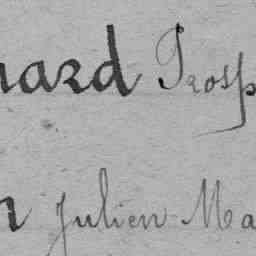 nard Prosp
n Julien Ma